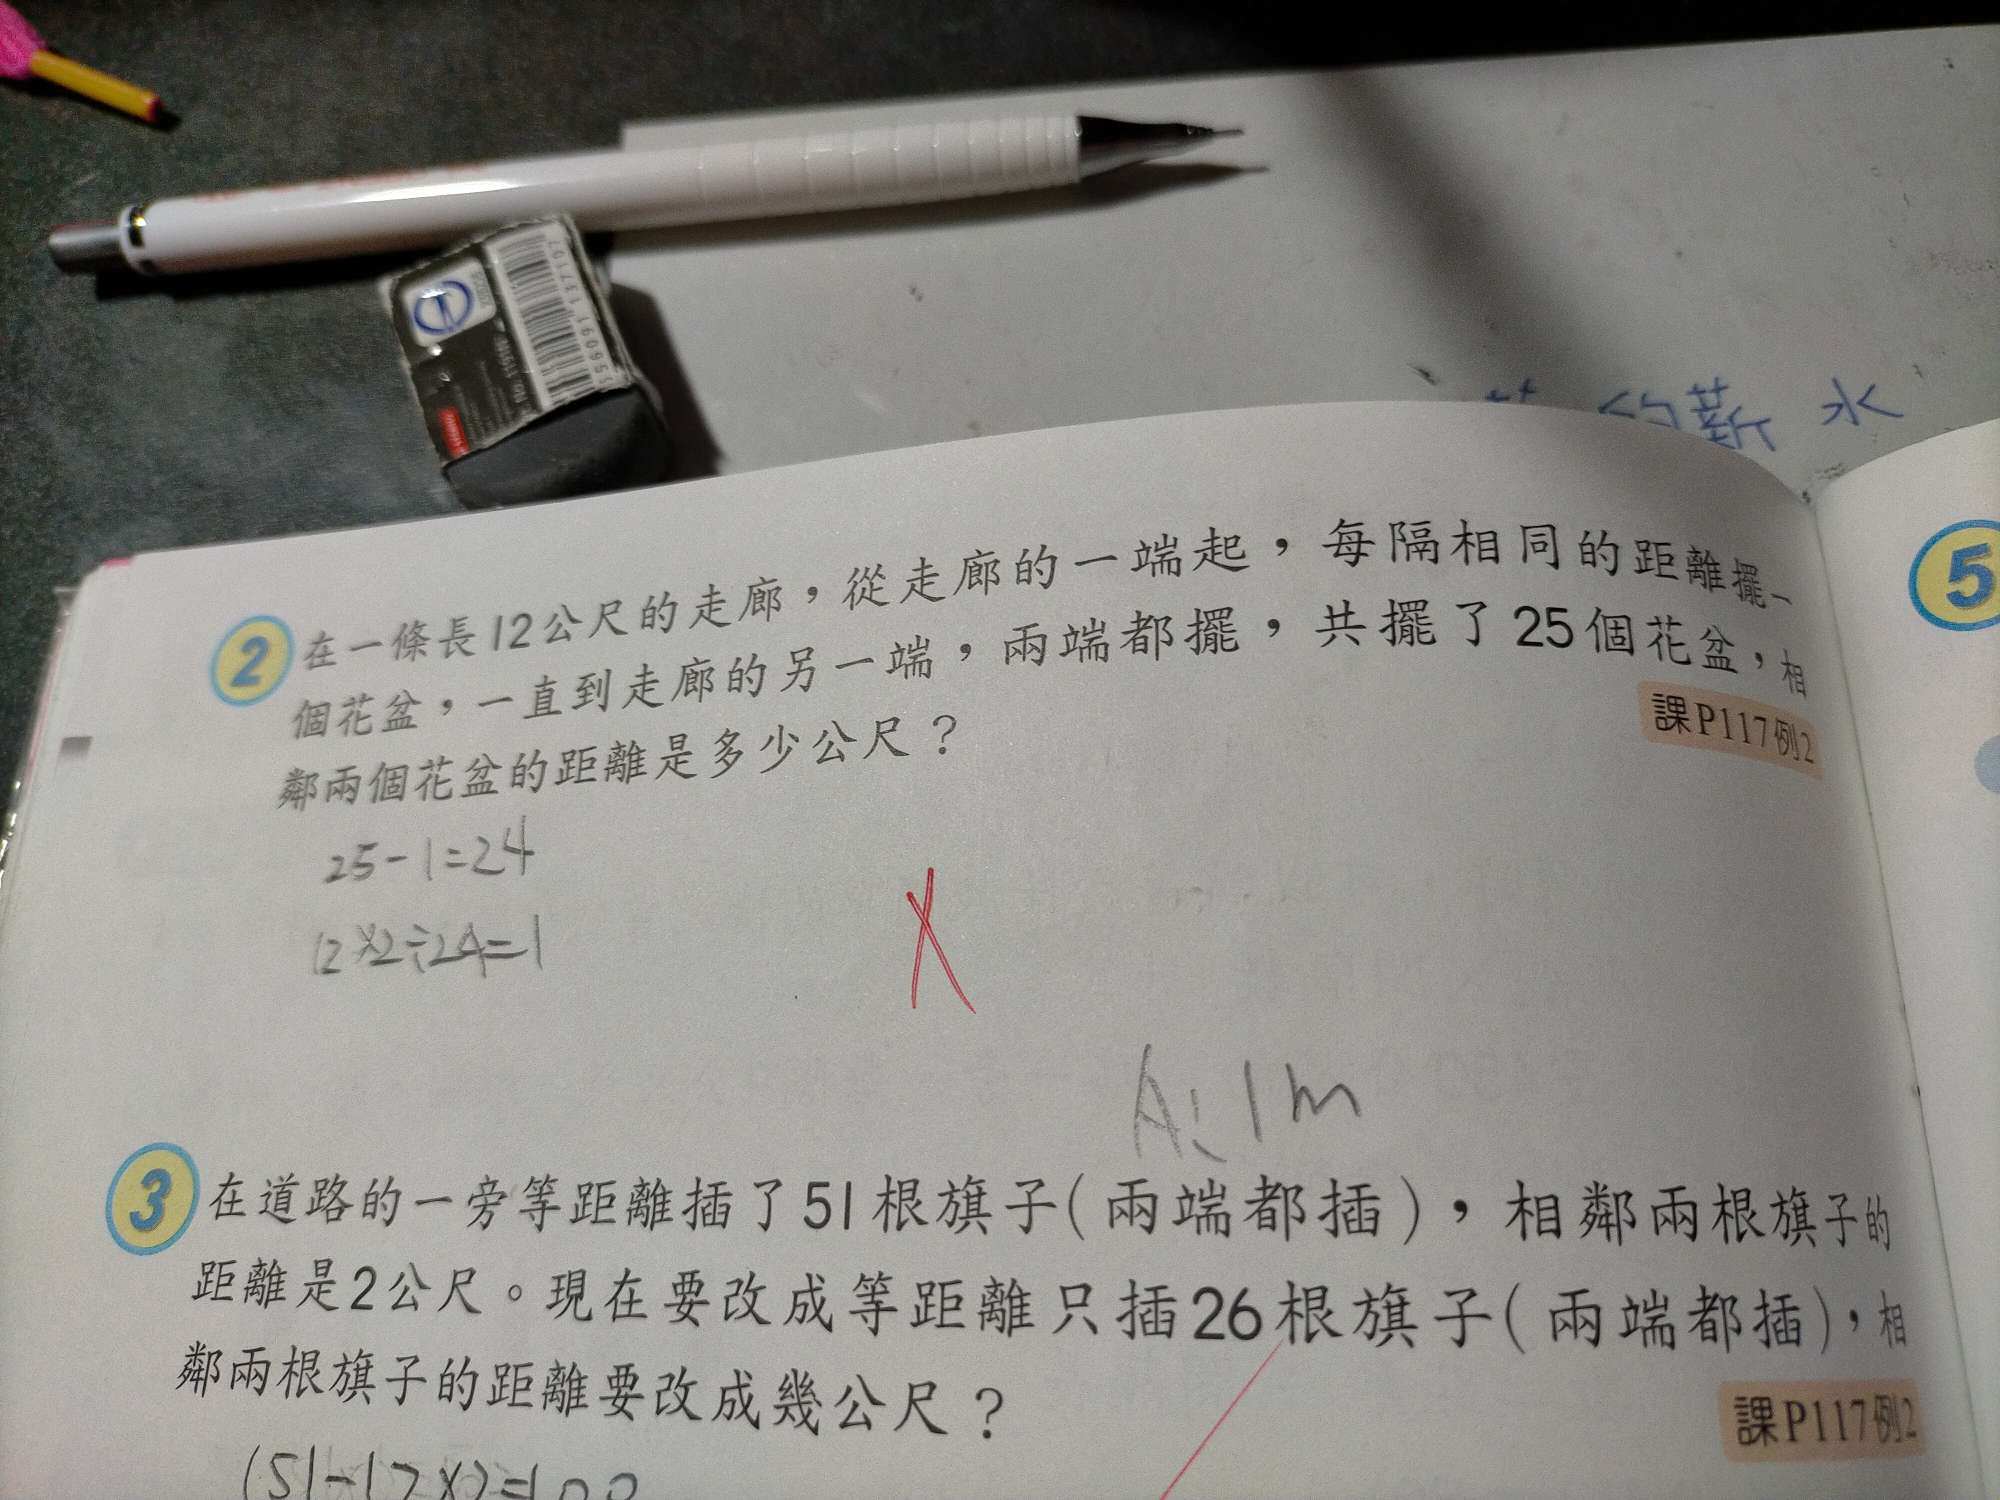 的薪水
2 在一條長12公尺的走廊，從走廊的一端起，每隔相同的距離擺一
個花盆，一直到走廊的另一端，兩端都擺，共擺了25個花盆，相
鄰兩個花盆的距離是多少公尺？
課P117例2
25-1=24
12×2÷24=1
A:1m
3 在道路的一旁等距離插了51根旗子(兩端都插)，相鄰兩根旗子的
距離是2公尺。現在要改成等距離只插26根旗子(兩端都插)，相
鄰兩根旗子的距離要改成幾公尺？
課P117例2
5